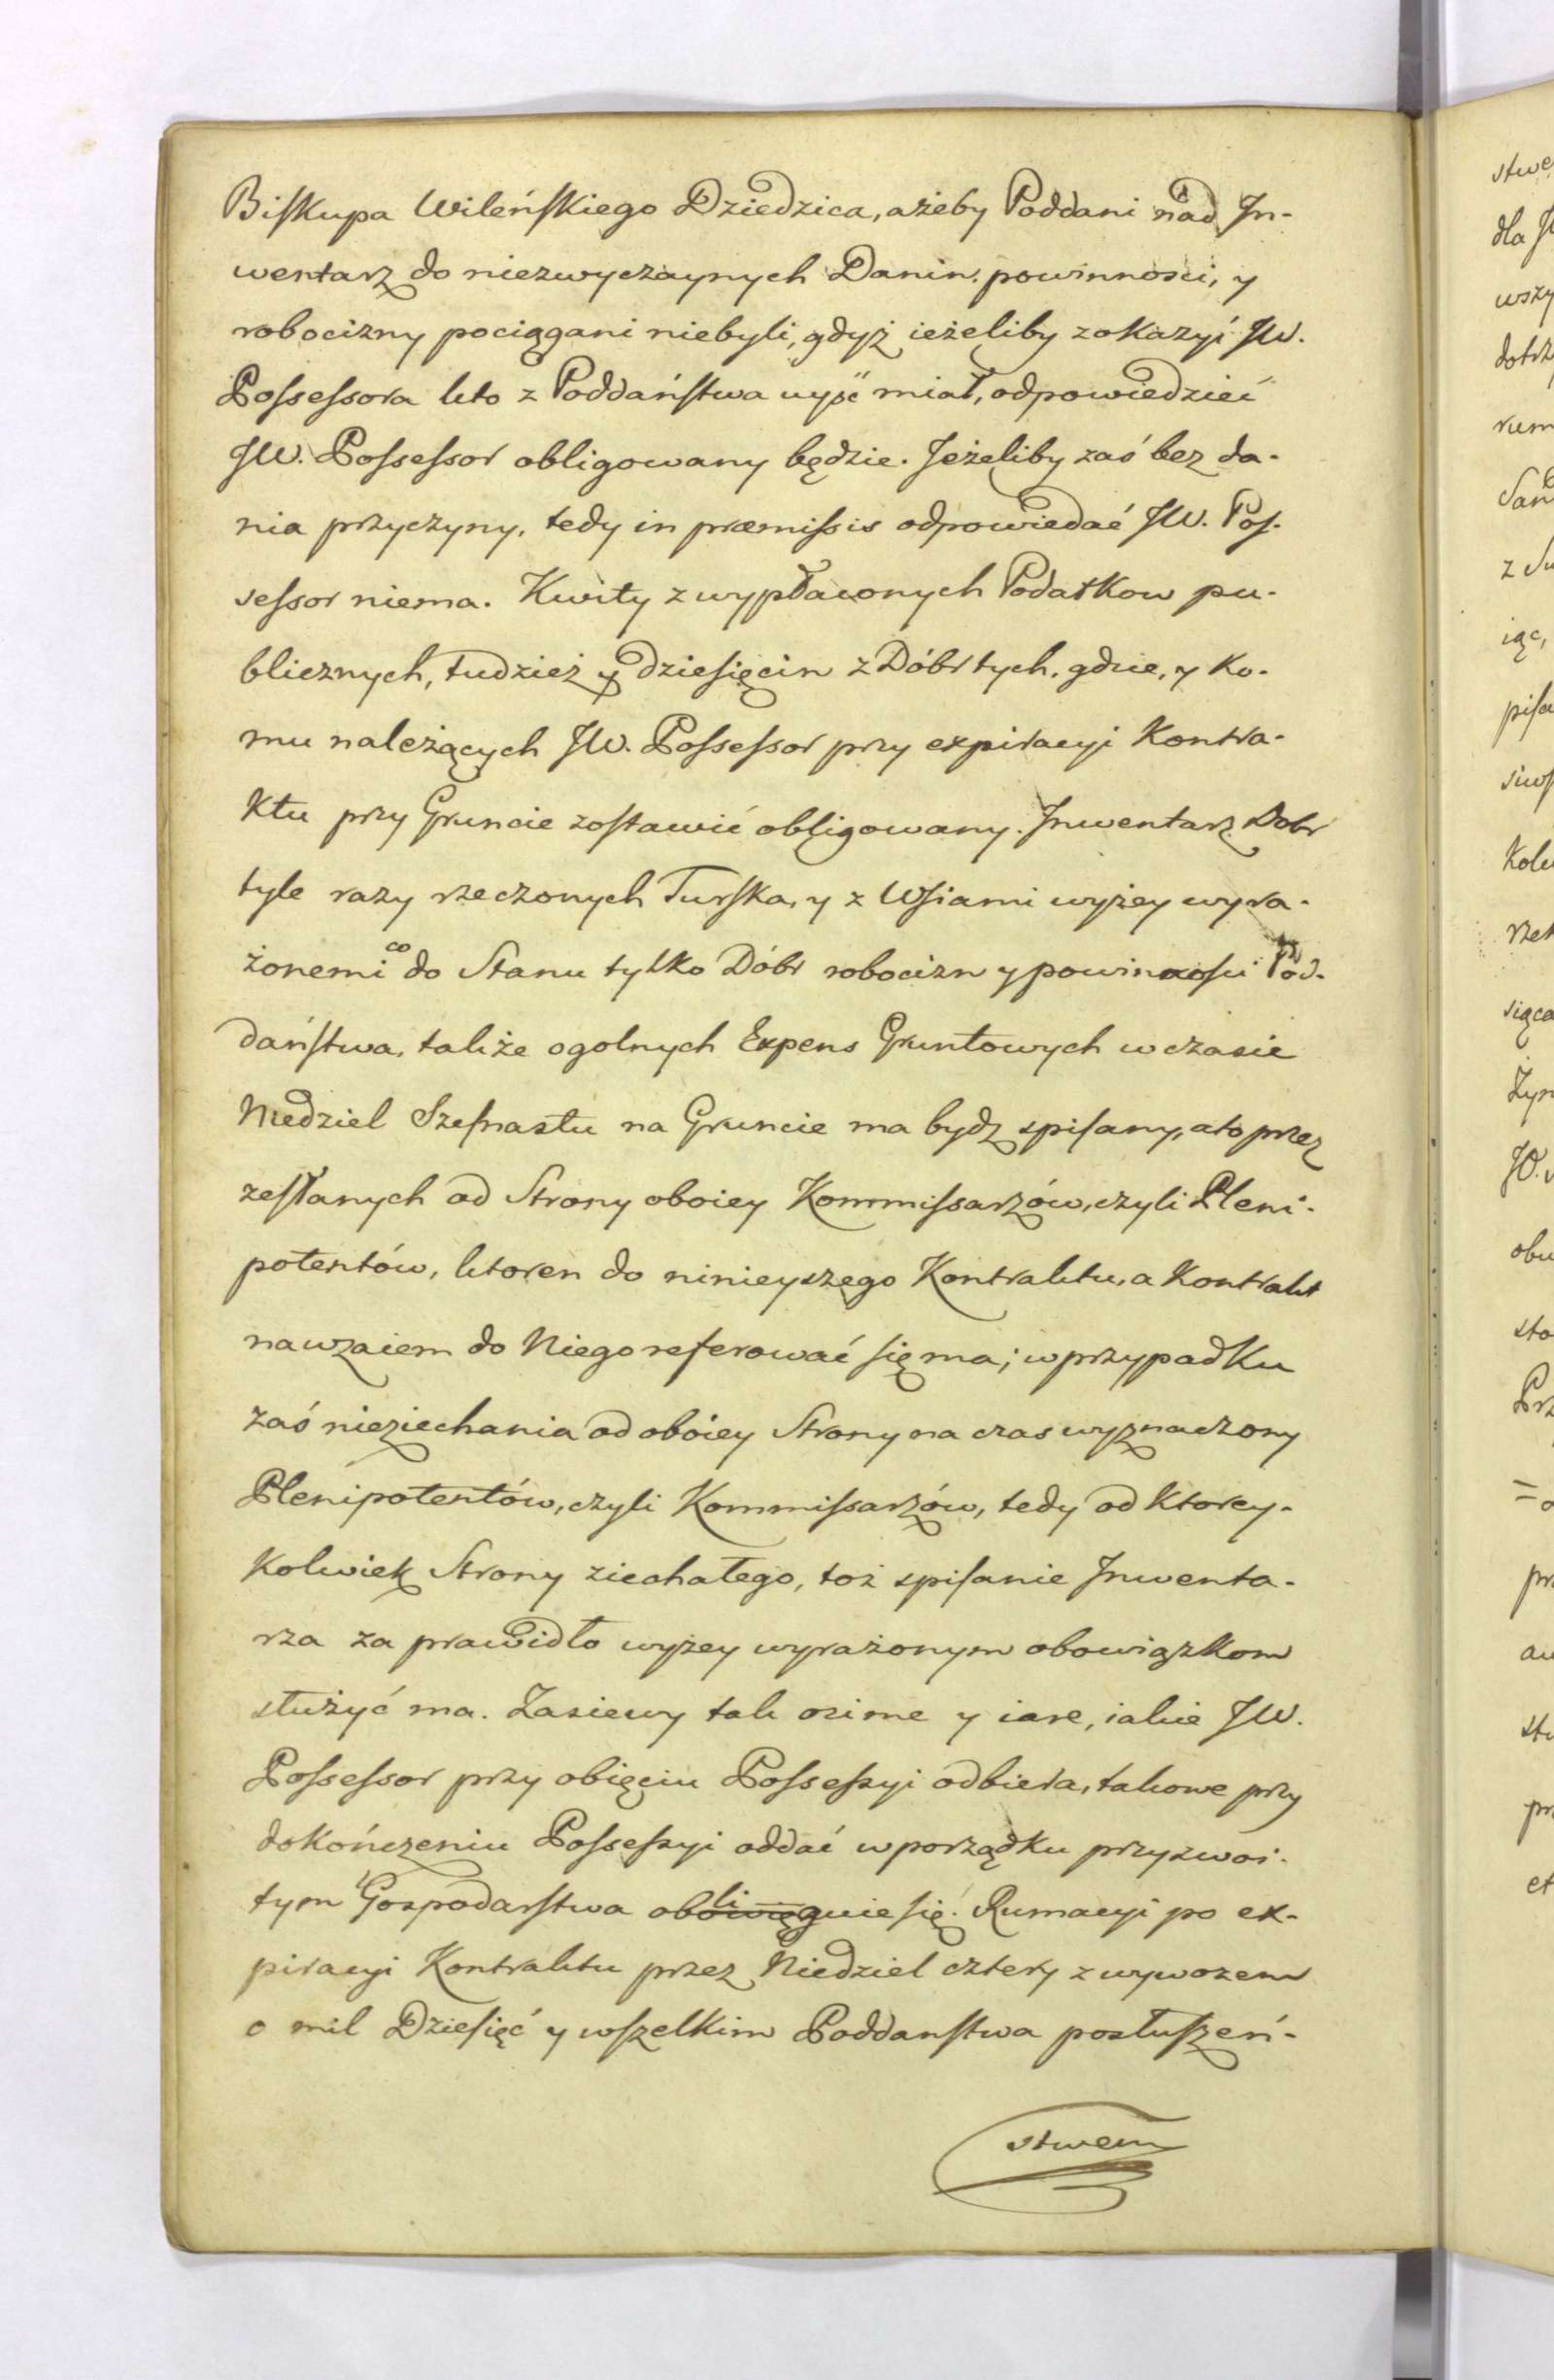 Biskupa Wileńskiego Dziedzica, ażeby Poddani nad In-
wentarz do niezwyczaynych Danin. powinnosci, y
robocizny pociągani niebyli, gdyż ieżeliby z okazyi JW.
Possessora kto z Poddaństwa uyść miał, odpowiedzieć
JW. Possessor obligowany będzie. Jeżeliby zaś bez da-
nia przyczyny, tedy in præmissis odpowiedać JW. Pos-
sessor niema. Kwity z wypłaconych Podatkow pu-
blicznych, tudzież y dziesięcin z Dóbr tych, gdzie, y ko-
mu należących JW. Possessor przy expiracyi Kontra-
ktu przy Gruncie zostawić obligowany. Inwentarz Dobr
tyle razy rzeczonych Turska, y z Wsiami wyżey wyra-
żonemi co do Stanu tylko Dóbr robocizn y powinnosci Pod-
daństwa, także ogolnych Expens Gruntowych w czasie
Niedziel Szesnastu na Gruncie ma bydz spisany, a to przez
zesłanych od Strony oboiey Kommissarzów, czyli Pleni-
potentów, ktoren do ninieyszego Kontraktu, a Kontrakt
nawzaiem do Niego referować się ma; w przypadku
zaś nieziechania od oboiey Strony na czas wyznaczony
Plenipotentów, czyli Kommissarzów, tedy od ktorey-
kolwiek Strony ziechałego, toż spisanie Inwenta-
rza za prawidło wyżey wyrażonym obowiązkom
służyć ma. Zasiewy tak ozime y iare, iakie JW.
Possessor przy obięciu Possessyi odbiera, takowe przy
dokończeniu Possessyi oddać w porządku przyzwoi-
tym Gospodarstwa obliguie się. Rumacyi po ex-
piracyi Kontraktu przez Niedziel cztery z wywozem
o mil Dziesięć y wszelkim Poddanstwa posłuszeń-
stwem